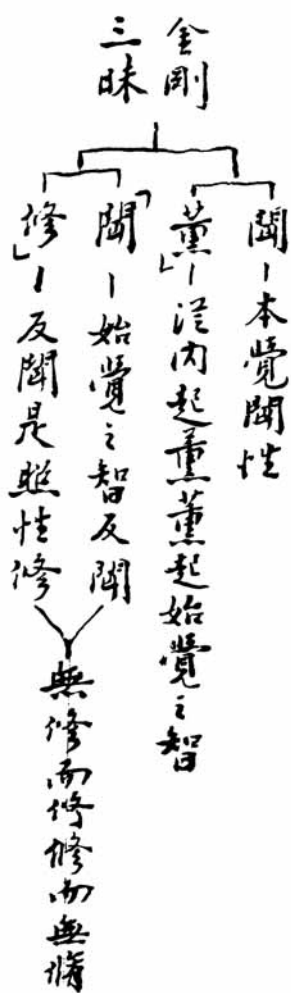 金剛
三昧
聞－本覺聞性
薰」－從内起薰薰起始覺之智
「聞－始覺之智反聞
修」－反聞是照性修
無修而修修而無修